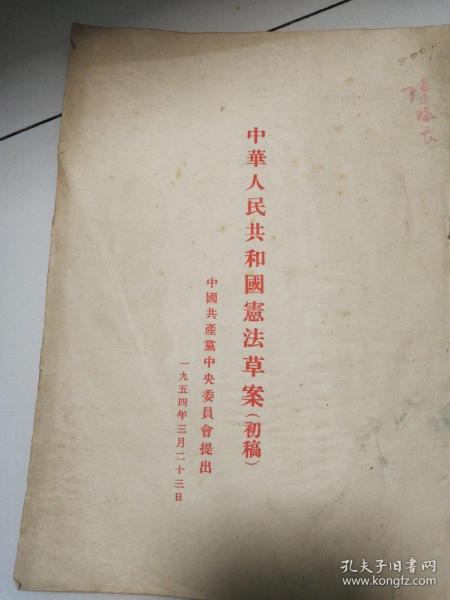 中華人民共和國憲法草案(初稿)
中國共產黨中央委員會提出
一九五四年三月二十三日
孔夫子旧书网
www.kongfz.com